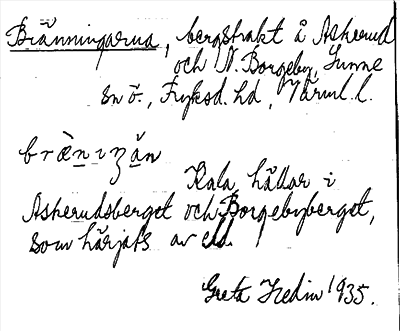 Bränningarna, bergstrakt å Askerud
och N. Borgeby, Sunne
sn ö., Fryksd. hd, Värml. l.
bræ̀nıŋän
Kala hällar i
Askerudsberget och Borgebyberget,
som härjats av eld.
Greta Hedin 1935.